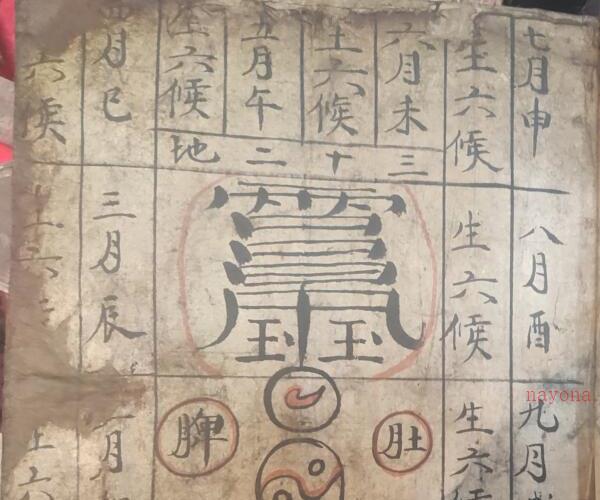 七月申
八月酉
九月
生六候
生六候
生六
六月未
生六候
五月午
生六候
三十二地
玉玉
肚
脾
月巳
三月辰
月
六候
nayona